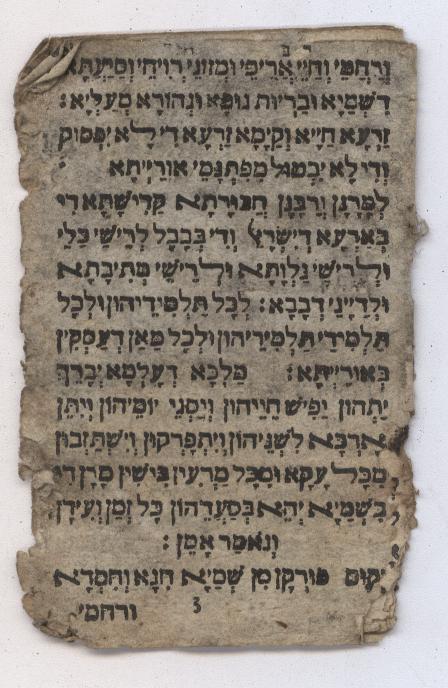 ורחמי וחיי אריכי ומזוני רויחי וסיעתא
דשמיא ובריות גופא ונהורא מעליא:
זרעא חייא וקימא זרעא די לא יפסוק
ודי לא יבטול מפתגמי אורייתא
למרנן ורבנן חבורתא קדישתא די
בארעא דישראל ודי בבבל לרישי כלי
ולרישי גלותא ולרישי מתיבתא
ולדייני דבבא: לכל תלמידיהון ולכל
תלמידי תלמידיהון ולכל מאן דעסקין
באורייתא: מלכא דעלמא יברך
יתהון יפיש חייהון ויסגי יומיהון ויתן
ארכא לשניהון ויתפרקון וישתזבון
מכל עקא ומכל מרעין בישין מרן די
בשמיא יהא בסעדהון כל זמן ועידן
ונאמר אמן:
יקום פורקן מן שמיא חנא וחסדא
3 ורחמי